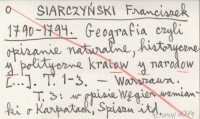 o SIARCZYŃSKI Franciszek
1790-1794. Geografia czyli
opisanie naturalne, historyczne
y polityczne kraiow y narodow
[...]. T. 1-3. — Warszawa.
T. 3: w opisie Węgier wzmian-
ki o Karpatach, Spiszu itd.